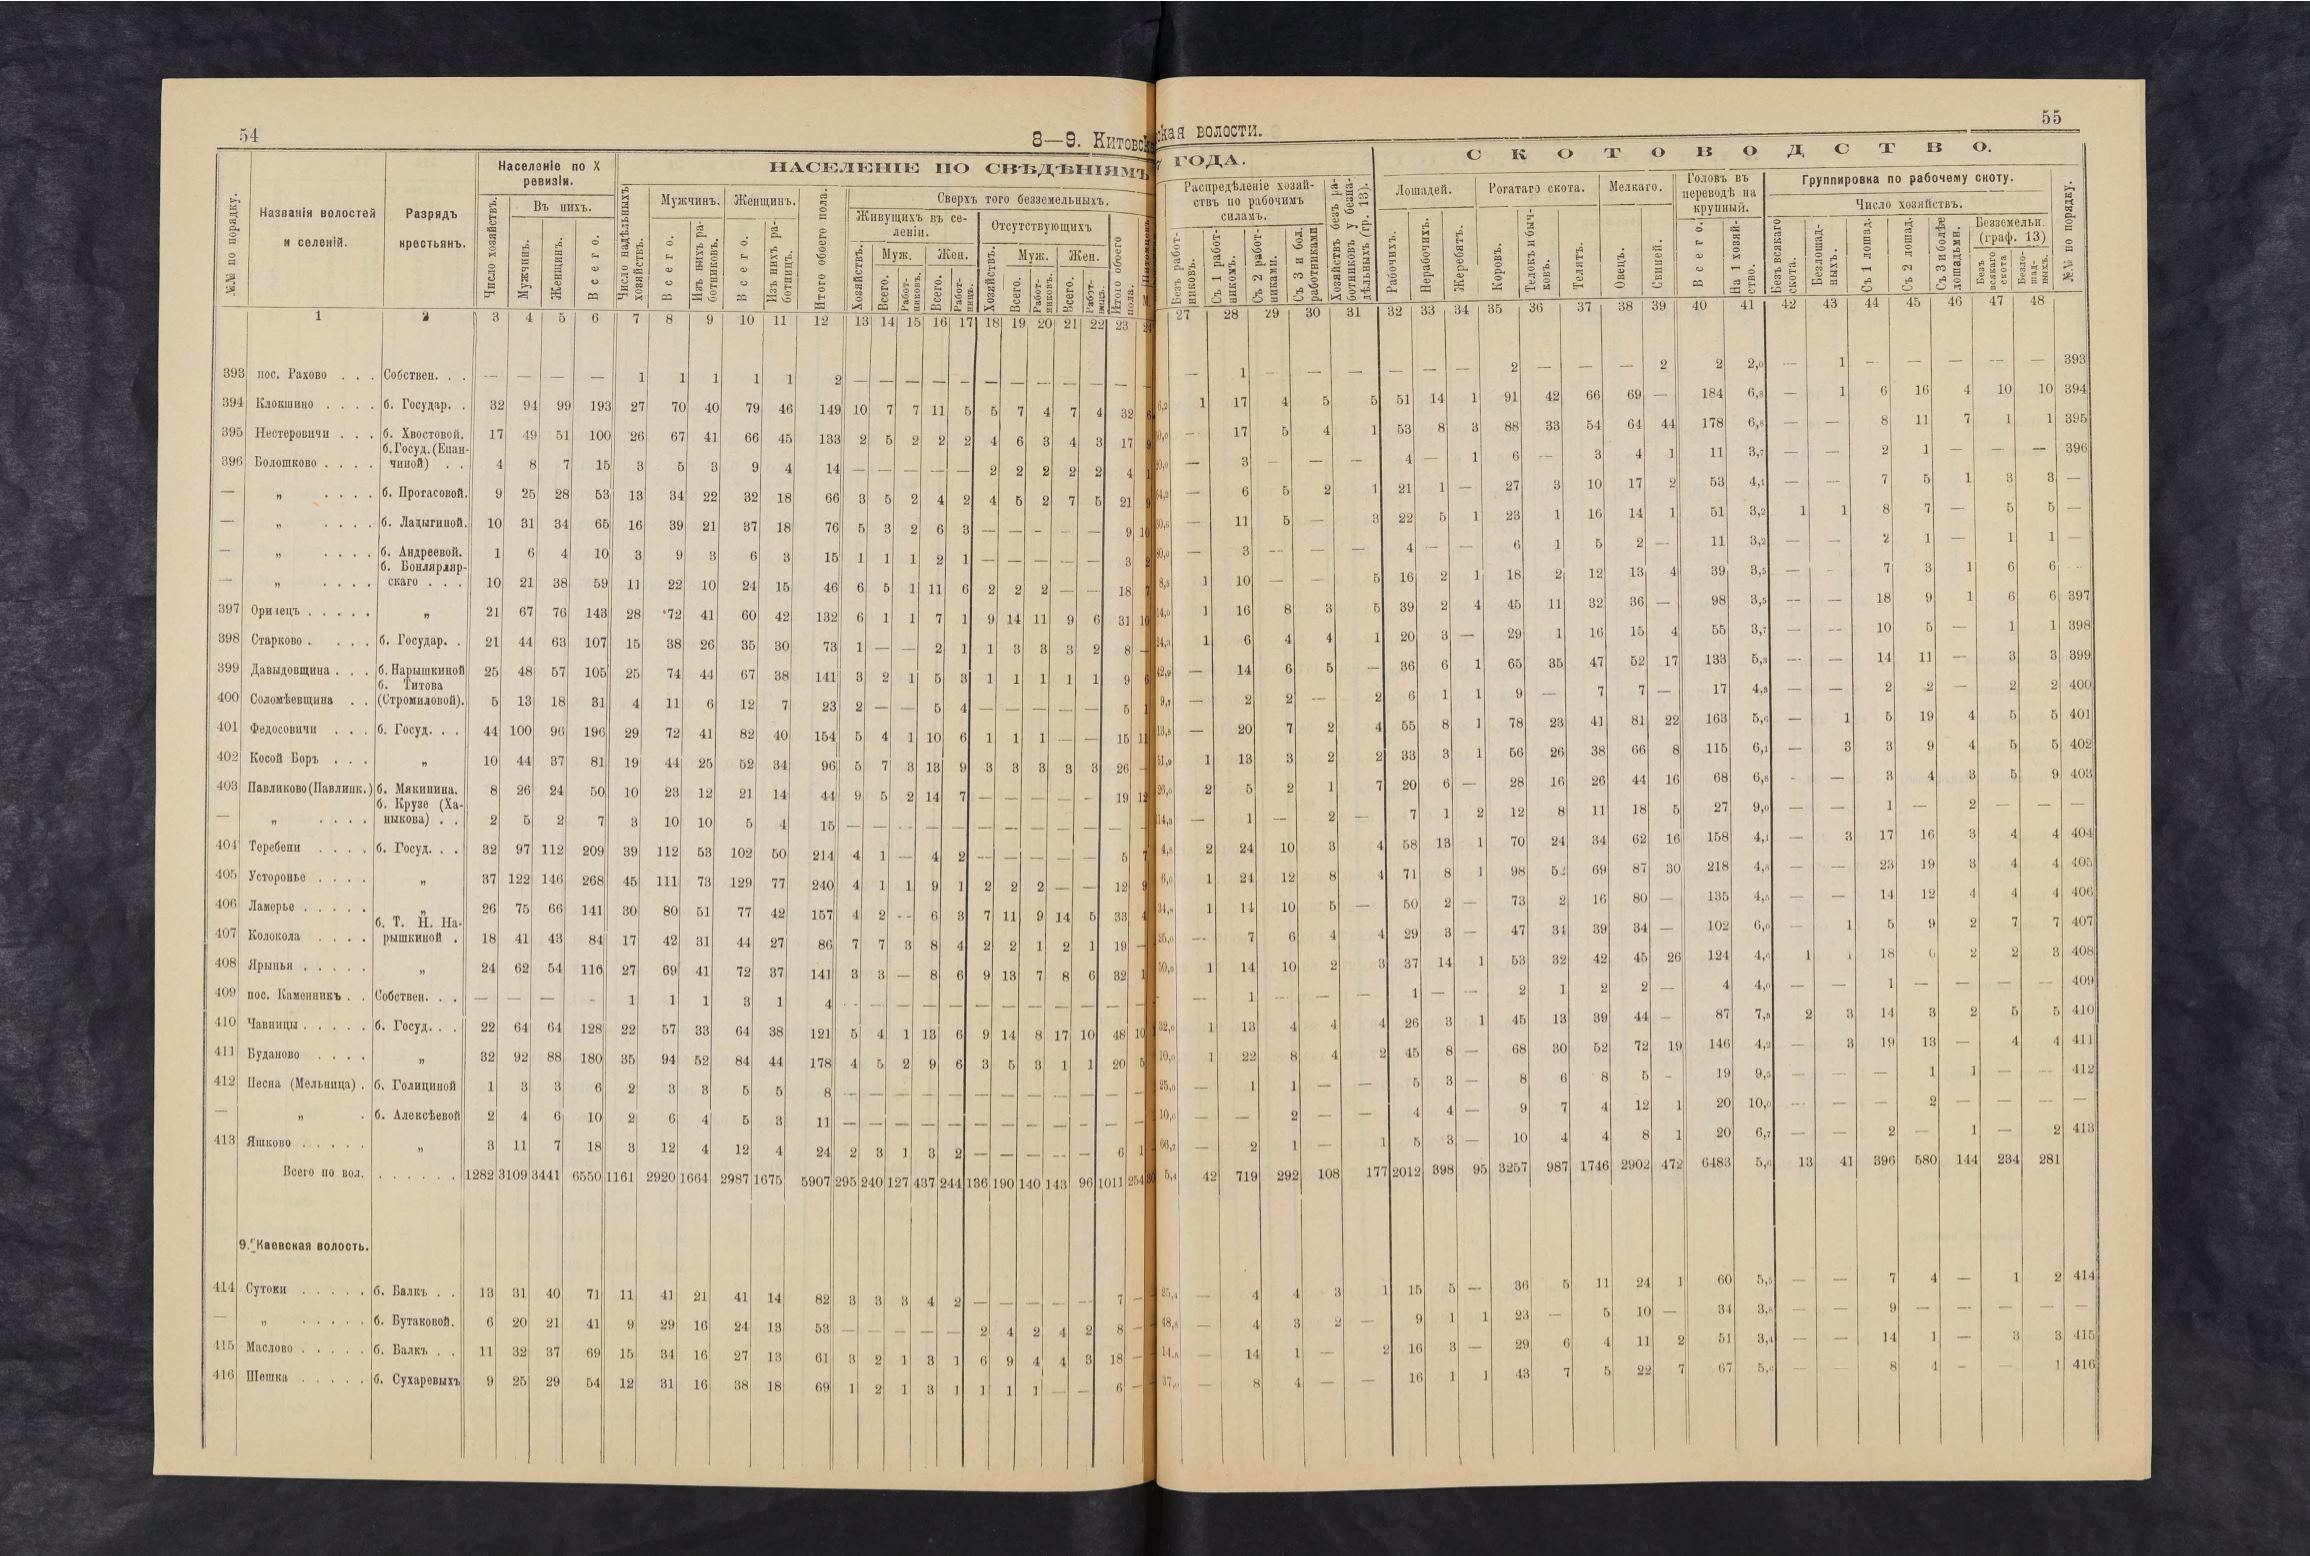 54
8—9. Китовская волости.
55
№№ по порядку.
Названія волостей и селеній.
Разрядъ крестьянъ.
Населеніе по X ревизіи.
Число хозяйствъ.
Въ нихъ.
Мужчинъ.
Женщинъ.
Всего.
НАСЕЛЕНІЕ ПО СВѢДѢНІЯМЪ
7 ГОДА.
Число надѣльныхъ хозяйствъ.
Мужчинъ.
Всего.
Изъ нихъ работниковъ.
Женщинъ.
Всего.
Изъ нихъ работницъ.
Итого обоего пола.
Сверхъ того безземельныхъ.
Живущихъ въ селеніи.
Хозяйствъ.
Муж.
Всего.
Работниковъ.
Жен.
Всего.
Работницъ.
Отсутствующихъ
Хозяйствъ.
Муж.
Всего.
Работниковъ.
Жен.
Всего.
Работницъ.
Итого обоего пола.
Распредѣленіе хозяйствъ по рабочимъ силамъ.
Безъ работниковъ.
Съ 1 работникомъ.
Съ 2 работниками.
Съ 3 и бол. работниками
Хозяйствъ безъ работниковъ у безнадѣльныхъ (гр. 13).
СКОТОВОДСТВО.
Лошадей.
Рабочихъ.
Нерабочихъ.
Жеребятъ.
Рогатаго скота.
Коровъ.
Телокъ и бычковъ.
Телятъ.
Мелкаго.
Овецъ.
Свиней.
Головъ въ переводѣ на крупный.
Всего.
На 1 хозяйство.
Группировка по рабочему скоту.
Число хозяйствъ.
Безъ всякаго скота.
Безлошадныхъ.
Съ 1 лошад.
Съ 2 лошад.
Съ 3 и болѣе лошадьми.
Безземельн. (граф. 13)
Безъ всякаго скота
Безлошадныхъ.
№№ по порядку.
1 2 3 4 5 6 7 8 9 10 11 12 13 14 15 16 17 18 19 20 21 22 23 24 27 28 29 30 31 32 33 34 35 36 37 38 39 40 41 42 43 44 45 46 47 48
393 пос. Рахово . . . Собствен. . . — — — — 1 1 1 1 1 2 — — — — — — — — — — — — — 1 — — — — — — 2 — — — 2 2 2,0 — 1 — — — — — 393
394 Клокшино . . . . б. Государ. . 32 94 99 193 27 70 40 79 46 149 10 7 7 11 5 5 7 4 7 4 32 6 6,2 1 17 4 5 5 51 14 1 91 42 66 69 — 184 6,8 — 1 6 16 4 10 10 394
395 Нестеровичи . . . б. Хвостовой. 17 49 51 100 26 67 41 66 45 133 2 5 2 2 2 4 6 3 4 3 17 9 — 17 5 4 1 53 8 3 88 33 54 64 44 178 6,8 — — 8 11 7 1 1 395
б. Госуд. (Епан-
396 Болошково . . . . чиной) . . 4 8 7 15 3 5 3 9 4 14 — — — — — 2 2 2 2 2 4 1 — 3 — — — 4 — 1 6 — 3 4 1 11 3,7 — — 2 1 — — — 396
— „ . . . . б. Протасовой. 9 25 28 53 13 34 22 32 18 66 3 5 2 4 2 4 5 2 7 5 21 9 — 6 5 2 1 21 1 — 27 3 10 17 2 53 4,1 — — 7 5 1 3 3 —
— „ . . . . б. Ладыгиной. 10 31 34 65 16 39 21 37 18 76 5 3 2 6 3 — — — — — 9 10 — 11 5 — 3 22 5 1 23 1 16 14 1 51 3,2 1 1 8 7 — 5 5 —
— „ . . . . б. Андреевой. 1 6 4 10 3 9 3 6 3 15 1 1 1 2 1 — — — — — 3 2 — 3 — — — 4 — — 6 1 5 2 — 11 3,2 — — 2 1 — 1 1 —
б. Бонлярляр-
— „ . . . . скаго . . . 10 21 38 59 11 22 10 24 15 46 6 5 1 11 6 2 2 2 — — 18 7 8,5 1 10 — — 5 16 2 1 18 2 12 13 4 39 3,5 — — 7 3 1 6 6
397 Оринецъ . . . . . „ 21 67 76 143 28 72 41 60 42 132 6 1 1 7 1 9 14 11 9 6 31 10 1 16 8 3 5 39 2 4 45 11 32 36 — 98 3,5 — — 18 9 1 6 6 397
398 Старково . . . . б. Государ. . 21 44 63 107 15 38 26 35 30 73 1 — — 2 1 1 3 3 3 2 8 — 1 6 4 4 1 20 3 — 29 1 16 15 4 55 3,7 — — 10 5 — 1 1 398
399 Давыдовщина . . . б. Нарышкиной 25 48 57 105 25 74 44 67 38 141 3 2 1 5 3 1 1 1 1 1 9 6 — 14 6 5 — 36 6 1 65 35 47 52 17 133 5,3 — — 14 11 — 3 3 399
б. Титова
400 Соломѣевщина . . (Стромиловой). 5 13 18 31 4 11 6 12 7 23 2 — — 5 4 — — — — — 5 1 9,7 — 2 2 — 2 6 1 1 9 — 7 7 — 17 4,3 — — 2 2 — 2 2 400
401 Федосовичи . . . б. Госуд. . . 44 100 96 196 29 72 41 82 40 154 5 4 1 10 6 1 1 1 — — 15 11 — 20 7 2 4 55 8 1 78 23 41 81 22 163 5,6 — 1 5 19 4 5 5 401
402 Косой Боръ . . . „ 10 44 37 81 19 44 25 52 34 96 5 7 3 13 9 3 3 3 3 3 26 — 1 13 3 2 2 33 3 1 56 26 38 66 8 115 6,1 — 3 3 9 4 5 5 402
403 Павликово (Павлинк.) б. Мякинина. 8 26 24 50 10 23 12 21 14 44 9 5 2 14 7 — — — — — 19 12 2 5 2 1 7 20 6 — 28 16 26 44 16 68 6,8 - — 3 4 3 5 9 403
б. Крузе (Ха-
— „ . . . . ныкова) . . 2 5 2 7 3 10 10 5 4 15 — — — — — — — — — — — — — 1 — 2 — 7 1 2 12 8 11 18 5 27 9,0 — — 1 — 2 — — —
404 Теребени . . . . б. Госуд. . . 32 97 112 209 39 112 53 102 50 214 4 1 — 4 2 — — — — — 5 7 4,8 2 24 10 3 4 58 13 1 70 24 34 62 16 158 4,1 — 3 17 16 3 4 4 404
405 Усторонье . . . . „ 37 122 146 268 45 111 73 129 77 240 4 1 1 9 1 2 2 2 — — 12 9 6,0 1 24 12 8 4 71 8 1 98 69 87 30 218 4,8 — — 23 19 3 4 4 405
406 Ламерье . . . . . „ 26 75 66 141 30 80 51 77 42 157 4 2 — 6 3 7 11 9 14 5 33 4 1 14 10 5 — 50 2 — 73 2 16 80 — 135 4,5 — — 14 12 4 4 4 406
б. Т. Н. На-
407 Колокола . . . . рышкиной . 18 41 43 84 17 42 31 44 27 86 7 7 3 8 4 2 2 1 2 1 19 — — 7 6 4 4 29 3 — 47 34 39 34 — 102 6,0 — 1 5 9 2 7 7 407
408 Ярынья . . . . . „ 24 62 54 116 27 69 41 72 37 141 3 3 — 8 6 9 13 7 8 6 32 1 1 14 10 2 3 37 14 1 53 32 42 45 26 124 4,6 1 1 18 6 2 2 3 408
409 пос. Каменникъ . . Собствен. . . — — — - 1 1 1 3 1 4 — — — — — — — — — — — — 1 — — — 1 — — 2 1 2 2 — 4 4,0 — — 1 — — — — 409
410 Чавницы . . . . . б. Госуд. . . 22 64 64 128 22 57 33 64 38 121 5 4 1 13 6 9 14 8 17 10 48 10 1 13 4 4 4 26 3 1 45 13 39 44 — 87 7,9 2 3 14 3 2 5 5 410
411 Буданово . . . . „ 32 92 88 180 35 94 52 84 44 178 4 5 2 9 6 3 5 3 1 1 20 5 1 22 8 4 2 45 8 — 68 30 52 72 19 146 4,2 — 3 19 13 — 4 4 411
412 Песна (Мельница) . б. Голициной 1 3 3 6 2 3 3 5 5 8 — — — — — — — — — — — — — 1 1 — — 5 3 — 8 6 8 5 - 19 9,5 — — — 1 1 — — 412
— „ . б. Алексѣевой 2 4 6 10 2 6 4 5 3 11 — — — — — — — — — — — — — — 2 — — 4 4 — 9 7 4 12 1 20 10,0 — — — 2 — — — —
413 Яшково . . . . . „ 3 11 7 18 3 12 4 12 4 24 2 3 1 3 2 — — — — — 6 1 — 2 1 — 1 5 3 — 10 4 4 8 1 20 6,7 — — 2 — 1 — 2 413
Всего по вол. . . . . . . 1282 3109 3441 6550 1161 2920 1664 2987 1675 5907 295 240 127 437 244 136 190 140 143 96 1011 254 5,4 42 719 292 108 177 2012 398 95 3257 987 1746 2902 472 6483 5,6 13 41 396 580 144 234 281
9. Каевская волость.
414 Сутоки . . . . . б. Балкъ . . 13 31 40 71 11 41 21 41 14 82 3 3 3 4 2 — — — — — 7 — — 4 4 3 1 15 5 — 36 5 11 24 1 60 5,5 — — 7 4 — 1 2 414
— „ . . . . . б. Бутаковой. 6 20 21 41 9 29 16 24 13 53 — — — — — 2 4 2 4 2 8 — — 4 3 2 — 9 1 1 23 — 5 10 — 34 3,8 — — 9 — — — — —
415 Маслово . . . . . б. Балкъ . . 11 32 37 69 15 34 16 27 13 61 3 2 1 3 1 6 9 4 4 3 18 — — 14 1 — 2 16 3 — 29 6 4 11 2 51 3,4 — — 14 1 — 3 3 415
416 Шешка . . . . . б. Сухаревыхъ 9 25 29 54 12 31 16 38 18 69 1 2 1 3 1 1 1 1 — — 6 — — 8 4 — — 16 1 1 43 7 5 22 7 67 5,6 — — 8 4 - — 1 416